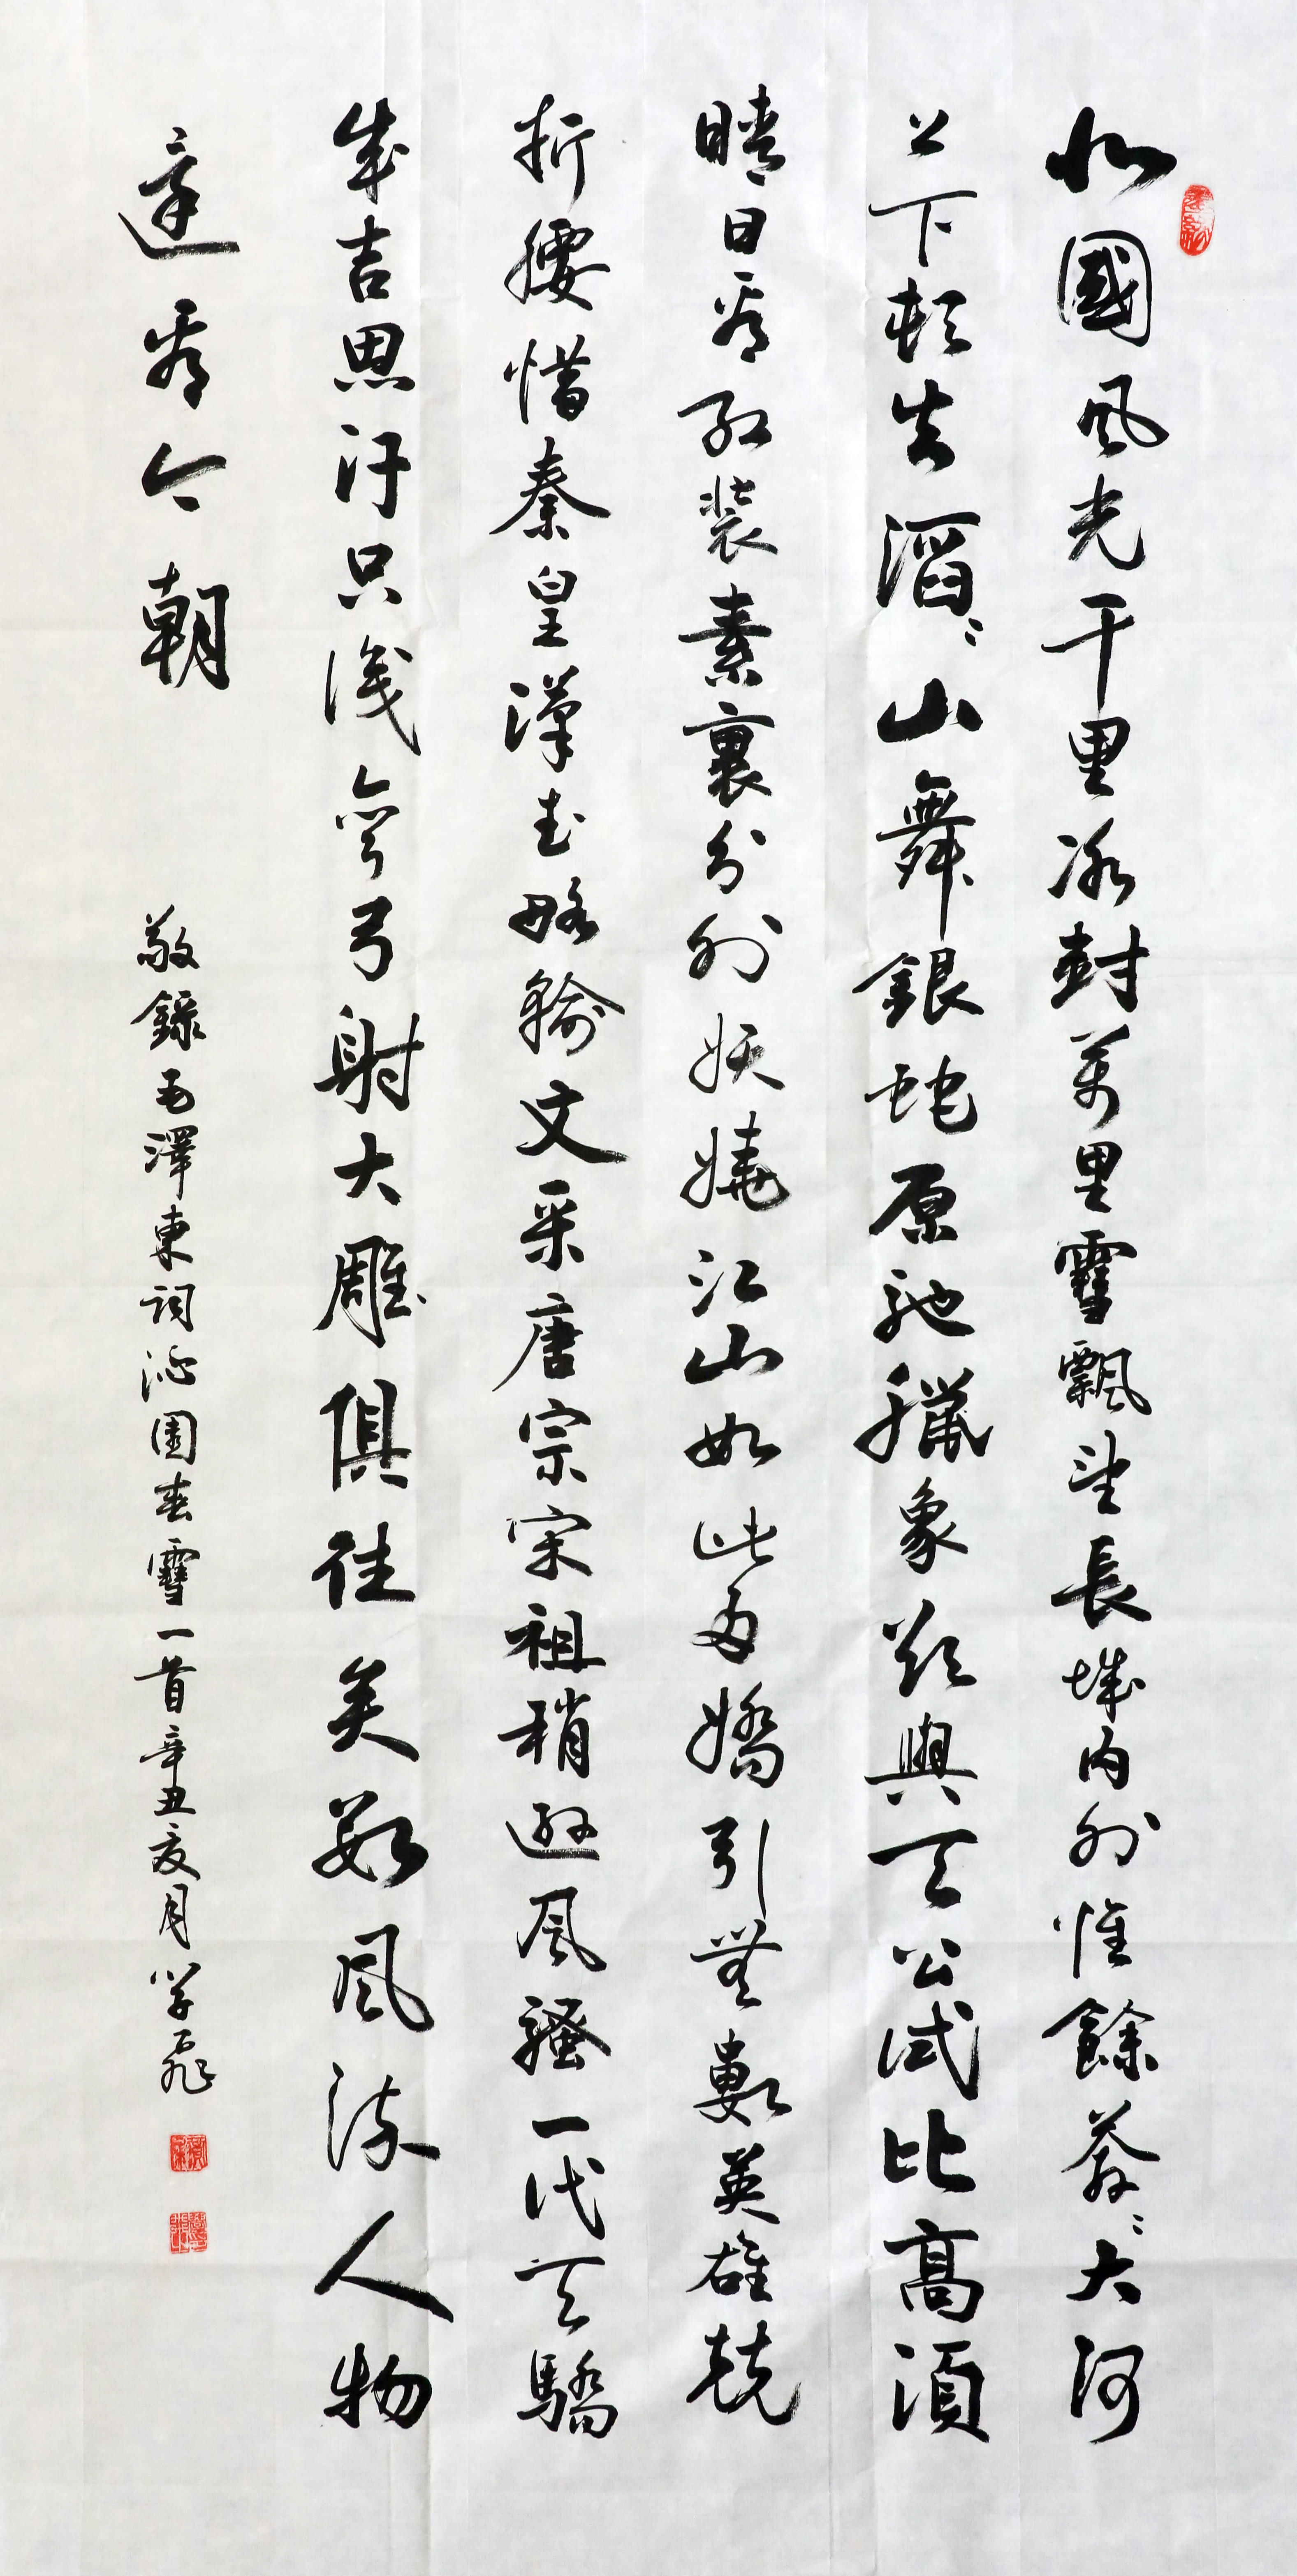 北國風光千里冰封萬里雪飄望長城内外惟餘莽〻大河
上下頓失滔〻山舞銀蛇原馳臘象欲與天公試比高須
晴日看紅裝素裹分外妖嬈江山如此多嬌引無數英雄競
折腰惜秦皇漢武略輸文采唐宗宋祖稍遜風騷一代天驕
成吉思汗只識彎弓射大雕俱往矣數風流人物
還看今朝
敬錄毛澤東詞沁園春雪一首辛丑夏月学飛